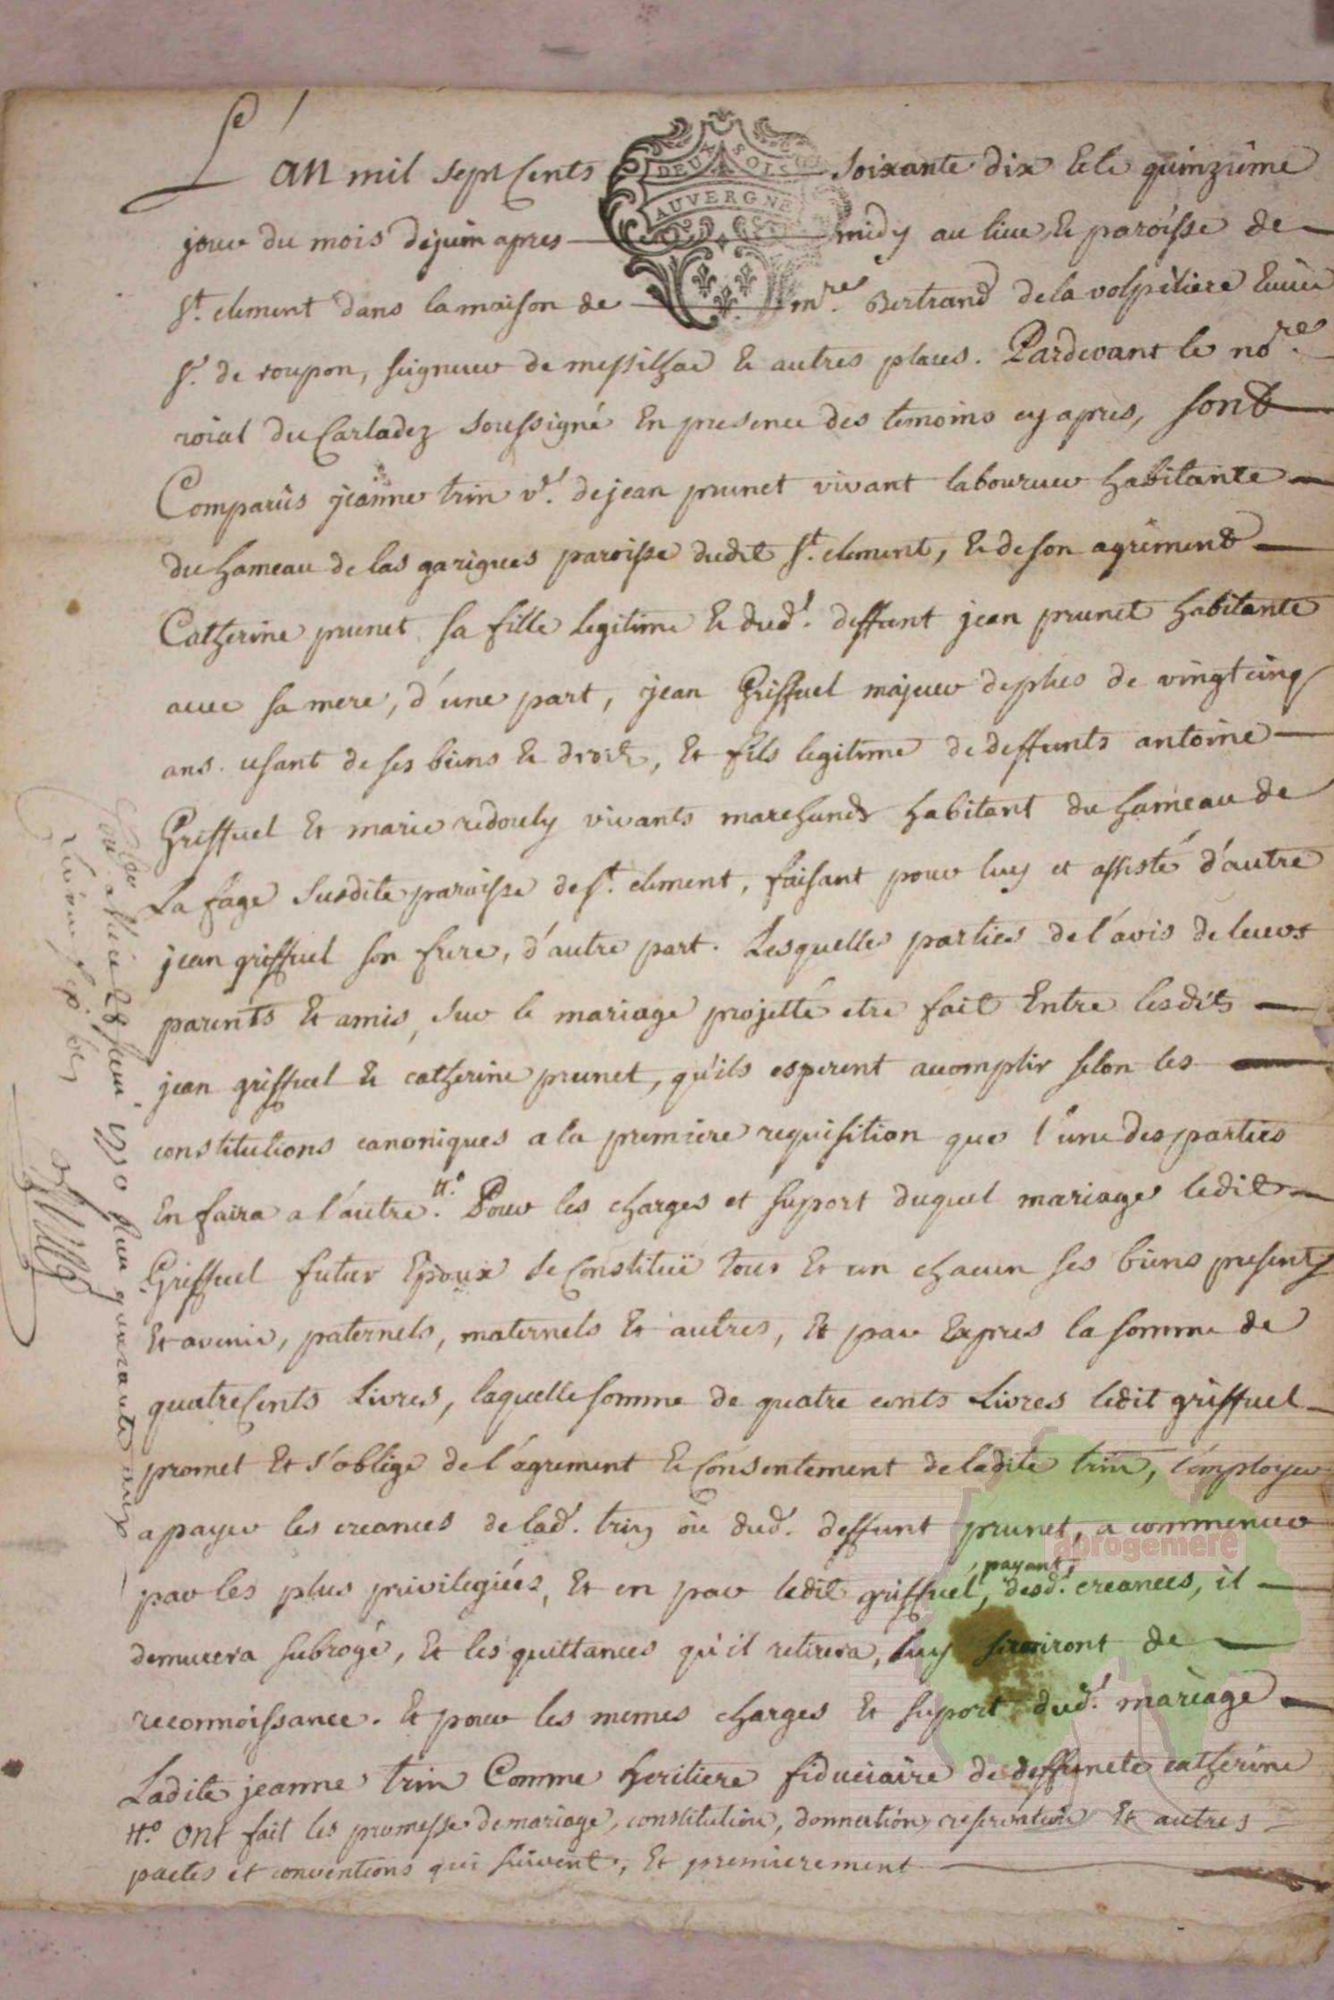 L'an mil sept Cents soixante dix & le quinzieme
DEUX SOLS
AUVERGNE
jour du mois de juin apres midy au lieu & paroisse de
St. clement dans la maison de mre. Bertrand de la volpiliere Ecuier
sr. de coupon, seigneur de messilhac & autres places. Pardevant le nore.
roial du Carladez soussigné En presence des temoins cy apres, sont
Comparüs jeanne trin ve. de jean prunet vivant laboureur habitante
du hameau de las garigues paroisse dudit St. clement, & de son agrement
Catherine prunet sa fille legitime & dud. deffunt jean prunet habitante
avec sa mere, d'une part, jean Griffuel majeur de plus de vingt cinq
ans usant de ses biens & droits, Et fils legitime de deffunts antoine
Griffuel Et marie redouly vivants marchands habitant du hameau de
La fage susdite paroisse de St. clement, faisant pour luy et assisté d'autre
jean griffuel son frere, d'autre part. Lesquelles parties de l'avis de leurs
parents Et amis, sur le mariage projetté etre fait Entre lesdits
jean griffuel & catherine prunet, qu'ils esperent acomplir selon les
constitutions canoniques a la premiere requisition que l'une des parties
En faira a l'autre. #° Pour les charges et suport duquel mariage ledit
Griffuel futur Epoux se Constitüe tous Et un chacun ses biens presents
Et avenir, paternels, maternels Et autres, Et par Expres la somme de
quatre Cents Livres, laquelle somme de quatre cents Livres ledit griffuel
promet Et s'oblige de l'agrement & Consentement de ladite trin, l'employer
a payer les creances de lad. trin ou dud. deffunt prunet, a commencer
par les plus privilegiées, Et en par ledit griffuel, payant desd. creances, il
demurera subrogé, Et les quittances qu'il retirera, luy serviront de
reconnoissance. Et pour les memes charges Et suport dud. mariage
Ladite jeanne trin Comme heritiere fiduciaire de deffunete catherine
#° ont fait les promesse de mariage, constitution, donnation, reservation Et autres
pactes et conventions qui suivent, Et premierement
aprogemere